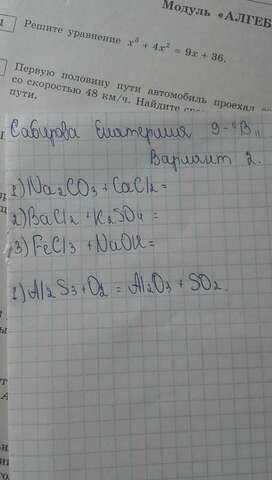 Модуль «АЛГЕБ
Решите уравнение x³ + 4x² = 9x + 36.
Первую половину пути автомобиль проехал
со скоростью 48 км/ч. Найдите
пути.
Сабирова Екатерина 9-"В"
Вариант 2.
1) Na2CO3 + CaCl2 =
2) BaCl2 + K2SO4 =
3) FeCl3 + NaOH =
1) Al2S3 + O2 = Al2O3 + SO2.